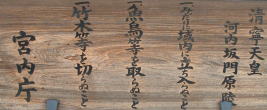 清寧天皇
河内坂門原陵
一、みだりに域内に立ち入らぬこと
一、魚鳥等を取らぬこと
一、竹木等を切らぬこと
宮内庁